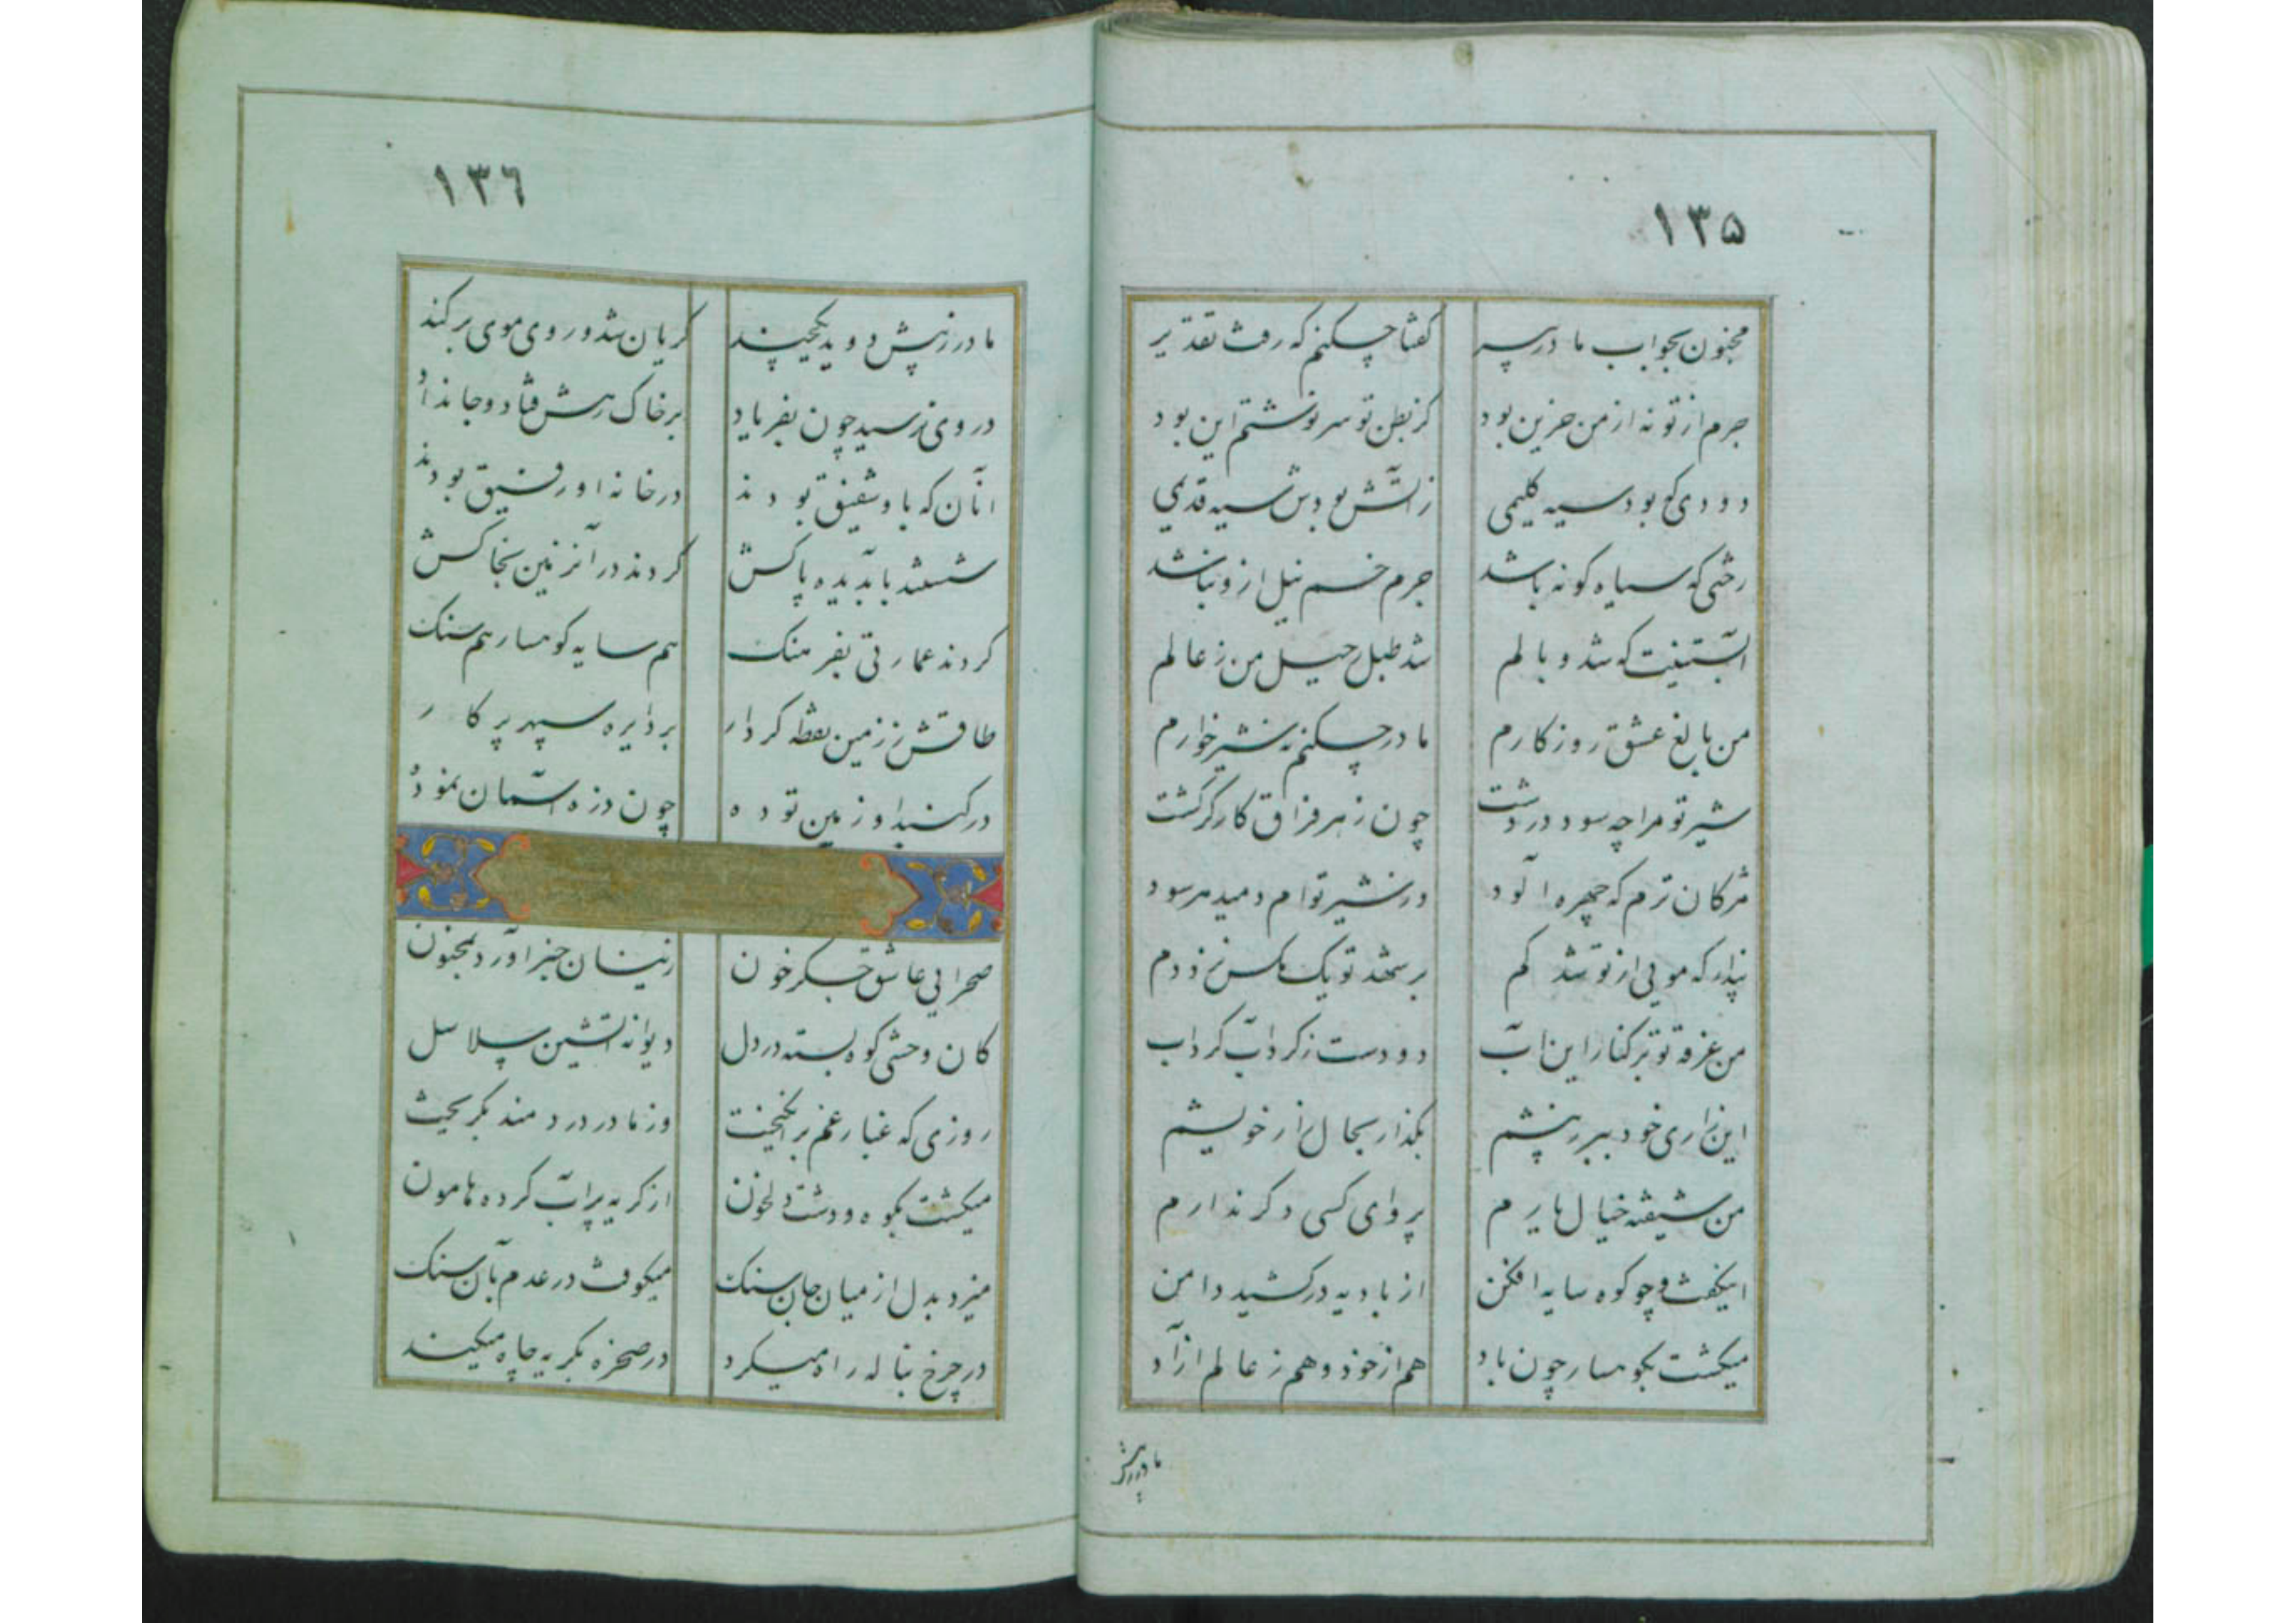 ۱۳۵
مجنون بجواب مادر پیر کفتا چکنم که رفت تقدیر
جرم از تو نه از من حزین بود کز بطن تو سر نوشتم این بود
دودی که بود سیه کلیمی زاتش بودش سیه قدیمی
رختی که سیاه کونه باشد جرم خم نیل ازو نباشد
آبستنیت که شد وبالم شد طبل رحیل من ز عالم
من بالغ عشق روزکارم مادر چکنم نه شیر خوارم
شیر تو مرا چه سود در دشت چون زهر فراق کارکر کشت
مژکان ترم که چهره آلود در شیر توام دمید مر سود
پندار که مویی از تو شد کم بر شهد تو یک مکس نزد دم
من غرقه تو بر کنار این آب دو دست ز کرداب کرداب
این زاری خود ببر ز پیشم بکذار بحال زار خویشم
من شیفته خیال یارم پروای کسی دکر ندارم
این کفت و چو کوه سایه افکن از بادیه در کشید دامن
میکشت بکوهسار چون باد هم از خود و هم ز عالم ازاد
مادر ز پیش
۱۳٦
مادر ز پیش دوید یکچند کریان شد و روی موی بر کند
در وی نرسید چون بفریاد بر خاک رهش فتاد و جان داد
انان که باو شفیق بودند در خانه او رفیق بودند
شستند بآب دیده پاکش کردند در آن زمین بخاکش
کردند عمارتی بفرهنک هم سایه کوهسار هم سنک
طاقش ز زمین نقطه کردار بر دایره سپهر پرکار
در کنبد او زمین توده چون ذره آسمان نموده
صحرایی عاشق جکر خون زینسان خبر اورد ز مجنون
کان وحشی کوه بسته در دل دیوانه آتشین سلاسل
روزی که غبار غم برانکیخت وز مادر دردمند بکریخت
میکشت بکوه و دشت دلخون از کریه پر آب کرده هامون
میزد بدل از میان جان سنک میکوفت در عدم بآن سنک
در چرخ بناله راه میکرد در صخره بکریه چاه میکند